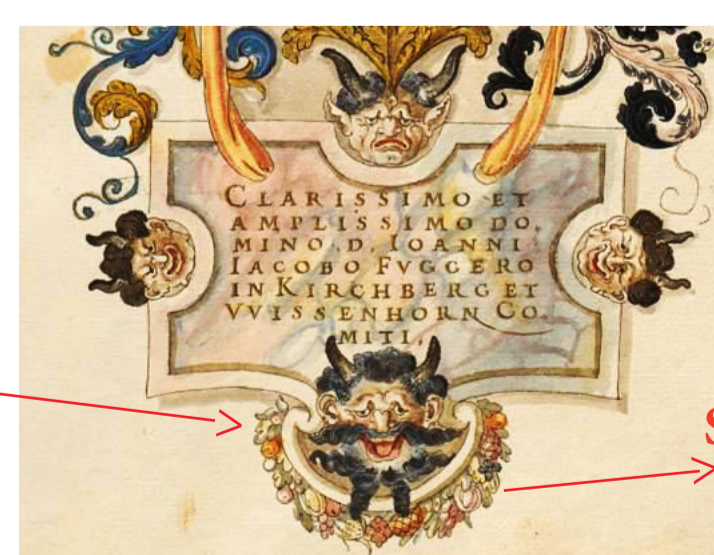 CLARISSIMO ET
AMPLISSIMO DO,
MINO, D, IOANNI
IACOBO FVGGERO
IN KIRCHBERG ET
VVISSENHORN CO,
MITI,
S